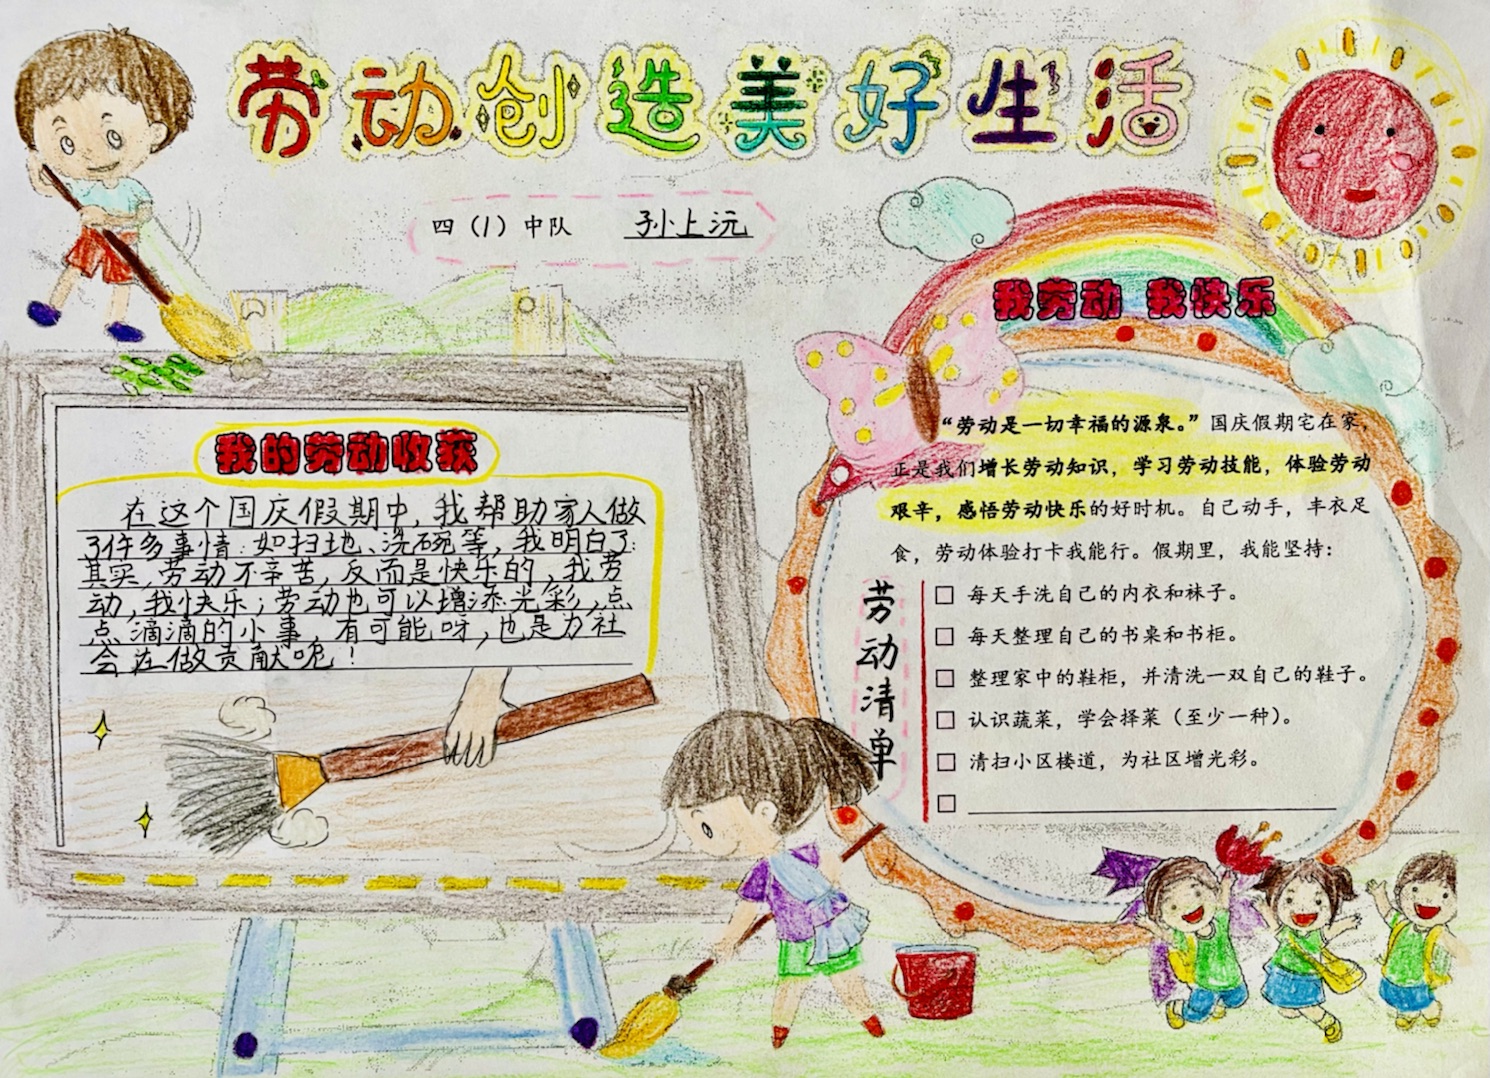 劳动创造美好生活
四（1）中队 孙上沅
我的劳动收获
在这个国庆假期中，我帮助家人做
了许多事情：如扫地、洗碗等，我明白了：
其实，劳动不辛苦，反而是快乐的，我劳
动，我快乐；劳动也可以增添光彩，点
点滴滴的小事，有可能呀，也是为社
会在做贡献呢！
我劳动 我快乐
“劳动是一切幸福的源泉。”国庆假期宅在家，
正是我们增长劳动知识，学习劳动技能，体验劳动
艰辛，感悟劳动快乐的好时机。自己动手，丰衣足
食，劳动体验打卡我能行。假期里，我能坚持：
劳动清单
每天手洗自己的内衣和袜子。
每天整理自己的书桌和书柜。
整理家中的鞋柜，并清洗一双自己的鞋子。
认识蔬菜，学会择菜（至少一种）。
清扫小区楼道，为社区增光彩。